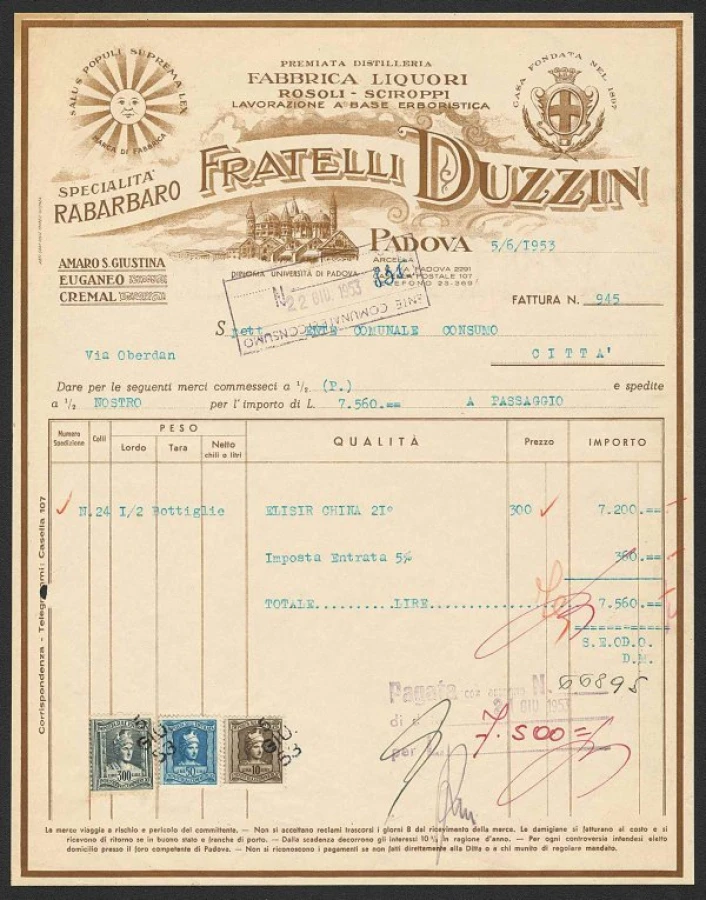 SALUS POPULI SUPREMA LEX
MARCA DI FABBRICA
PREMIATA DISTILLERIA
FABBRICA LIQUORI
ROSOLI - SCIROPPI
LAVORAZIONE A BASE ERBORISTICA
CASA FONDATA NEL 1897
SPECIALITA'
RABARBARO
FRATELLI DUZZIN
AMARO S. GIUSTINA
EUGANEO
CREMAL
DIPLOMA UNIVERSITÀ DI PADOVA
PADOVA
5/6/1953
ARCELLA
PADOVA 2291
POSTALE 107
TELEFONO 23-369
N.
22 GIU. 1953
ENTE COMUNALE CONSUMO
FATTURA N. 945
S.pett. ENTE COMUNALE CONSUMO
Via Oberdan
CITTA'
Dare per le seguenti merci commesseci a ½ (P.) e spedite
a ½ NOSTRO per l'importo di L. 7.560.== A PASSAGGIO
Numero Spedizione
Colli
PESO
Lordo
Tara
Netto chili o litri
QUALITÀ
Prezzo
IMPORTO
N.24 I/2 Bottiglie ELISIR CHINA 21° 300 7.200.==
Imposta Entrata 5% 360.==
TOTALE..........LIRE.............. 7.560.==
S.E.OD.O.
D.M.
Corrispondenza - Telegrammi: Casella 107
Pagata con assegno N. 66895
2 GIU 1953
di
per
7.500=
300
50
10
5 GIU. 53
5 GIU. 53
La merce viaggia a rischio e pericolo del committente. — Non si accettano reclami trascorsi i giorni 8 dal ricevimento della merce. Le damigiane si fatturano al costo e si
ricevono di ritorno se in buono stato e franche di porto. — Dalla scadenza decorrono gli interessi 10 % in ragione d'anno. — Per ogni controversia intendesi eletto
domicilio presso il foro competente di Padova. — Non si riconoscono i pagamenti se non fatti direttamente alla Ditta o a chi munito di regolare mandato.